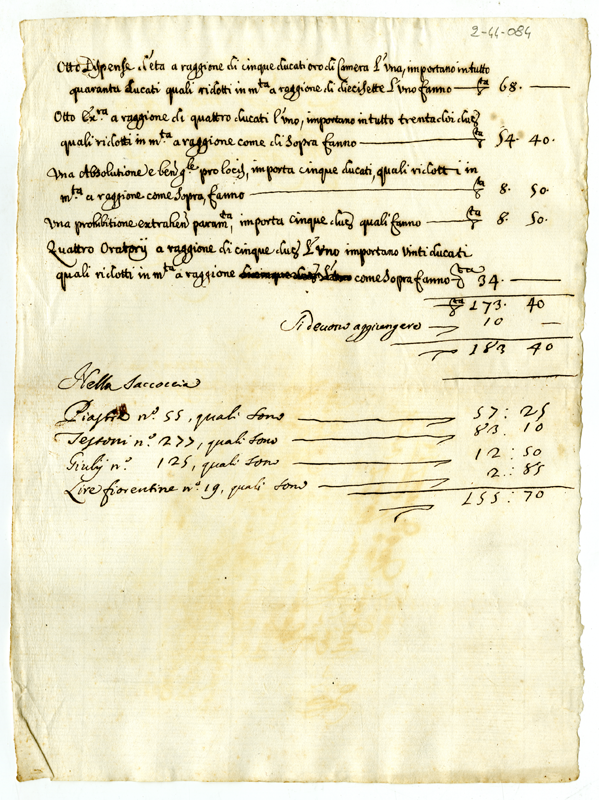 2-44-084
Otto Dispense d'età a raggione di cinque ducati oro di Camera l'Una, importano in tutto
quaranta ducati quali ridotti in m.ta a raggione di diecisette l'uno fanno — 68. —
Otto Ex.ra a raggione di quattro ducati l'uno, importano in tutto trentadoi duc.
quali ridotti in m.ta a raggione come di Sopra fanno — 54. 40.
Una Absolutione e ben pro locis, importa cinque ducati, quali ridotti in
m.ta a raggione come Sopra, fanno — 8. 50.
Una prohibitione extrahen param.ta, importa cinque duc. quali fanno — 8. 50.
Quattro Oratorij a raggione di cinque duc. l'Uno importano vinti ducati
quali ridotti in m.ta a raggione come Sopra fanno — 34. —
173. 40
Si devono aggiungere — 10 —
183 40
Nella Saccoccia
Piastre n.o 55, quali sono — 57: 25
Testoni n.o 277, quali sono — 83. 10
Giulij n.o 125, quali sono — 12: 50
Lire fiorentine n.o 19, quali sono — 2: 85
155: 70